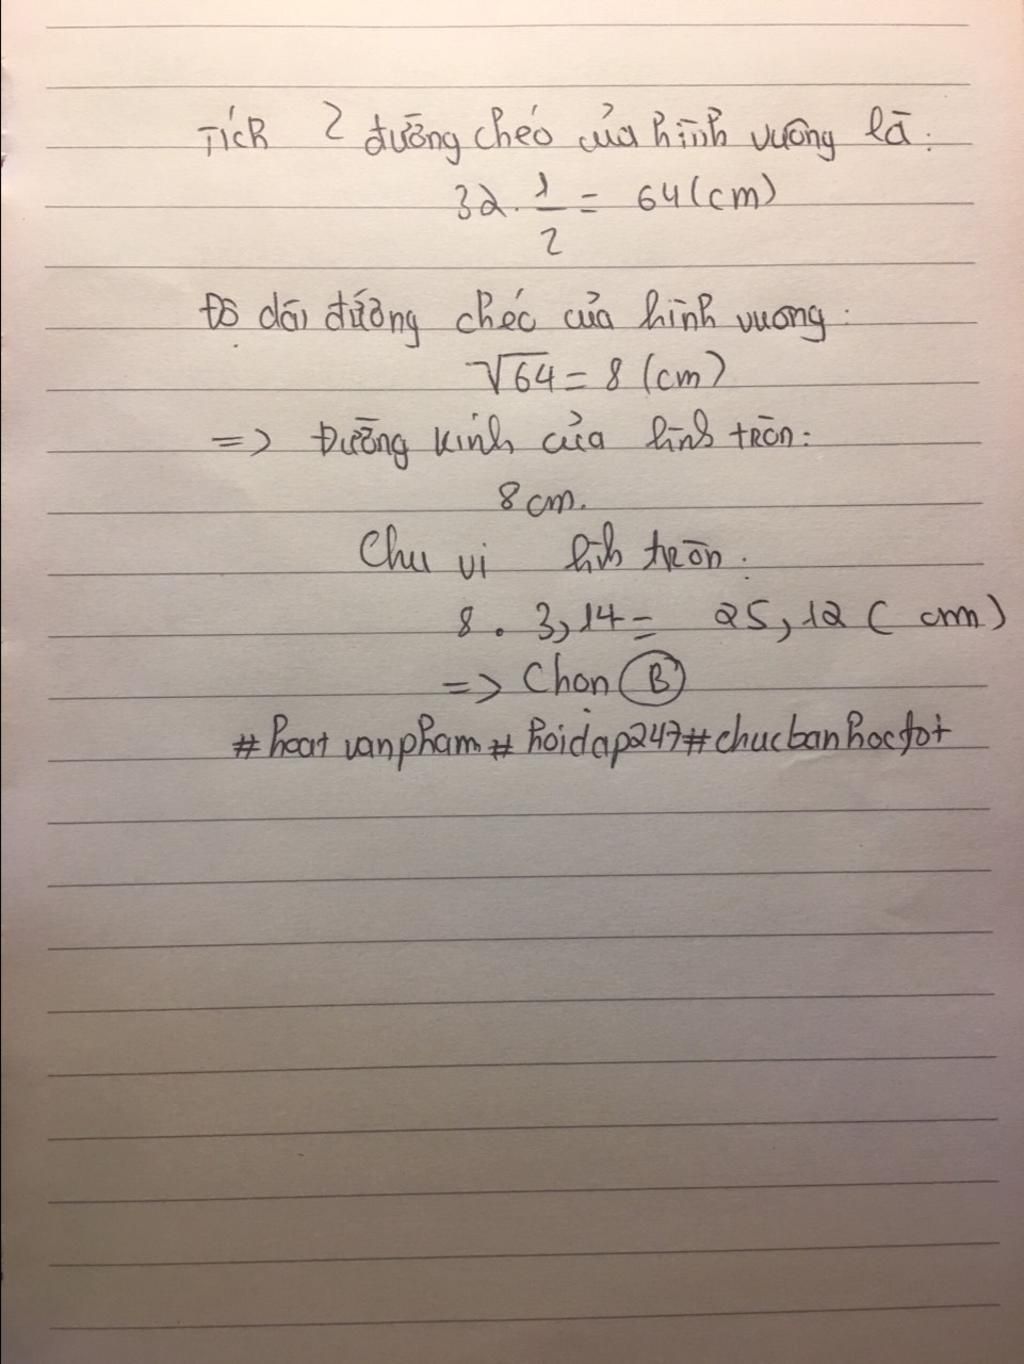 Tích 2 đường chéo của hình vuông là:
32 . 1/2 = 64 (cm)
Độ dài đường chéo của hình vuong:
√64 = 8 (cm)
=> Đường kính của hình tròn:
8 cm.
Chu vi hình tròn.
8 . 3,14 = 25,12 (cm)
=> Chọn B
#hoatvanpham#hoidap247#chucbanhoctot